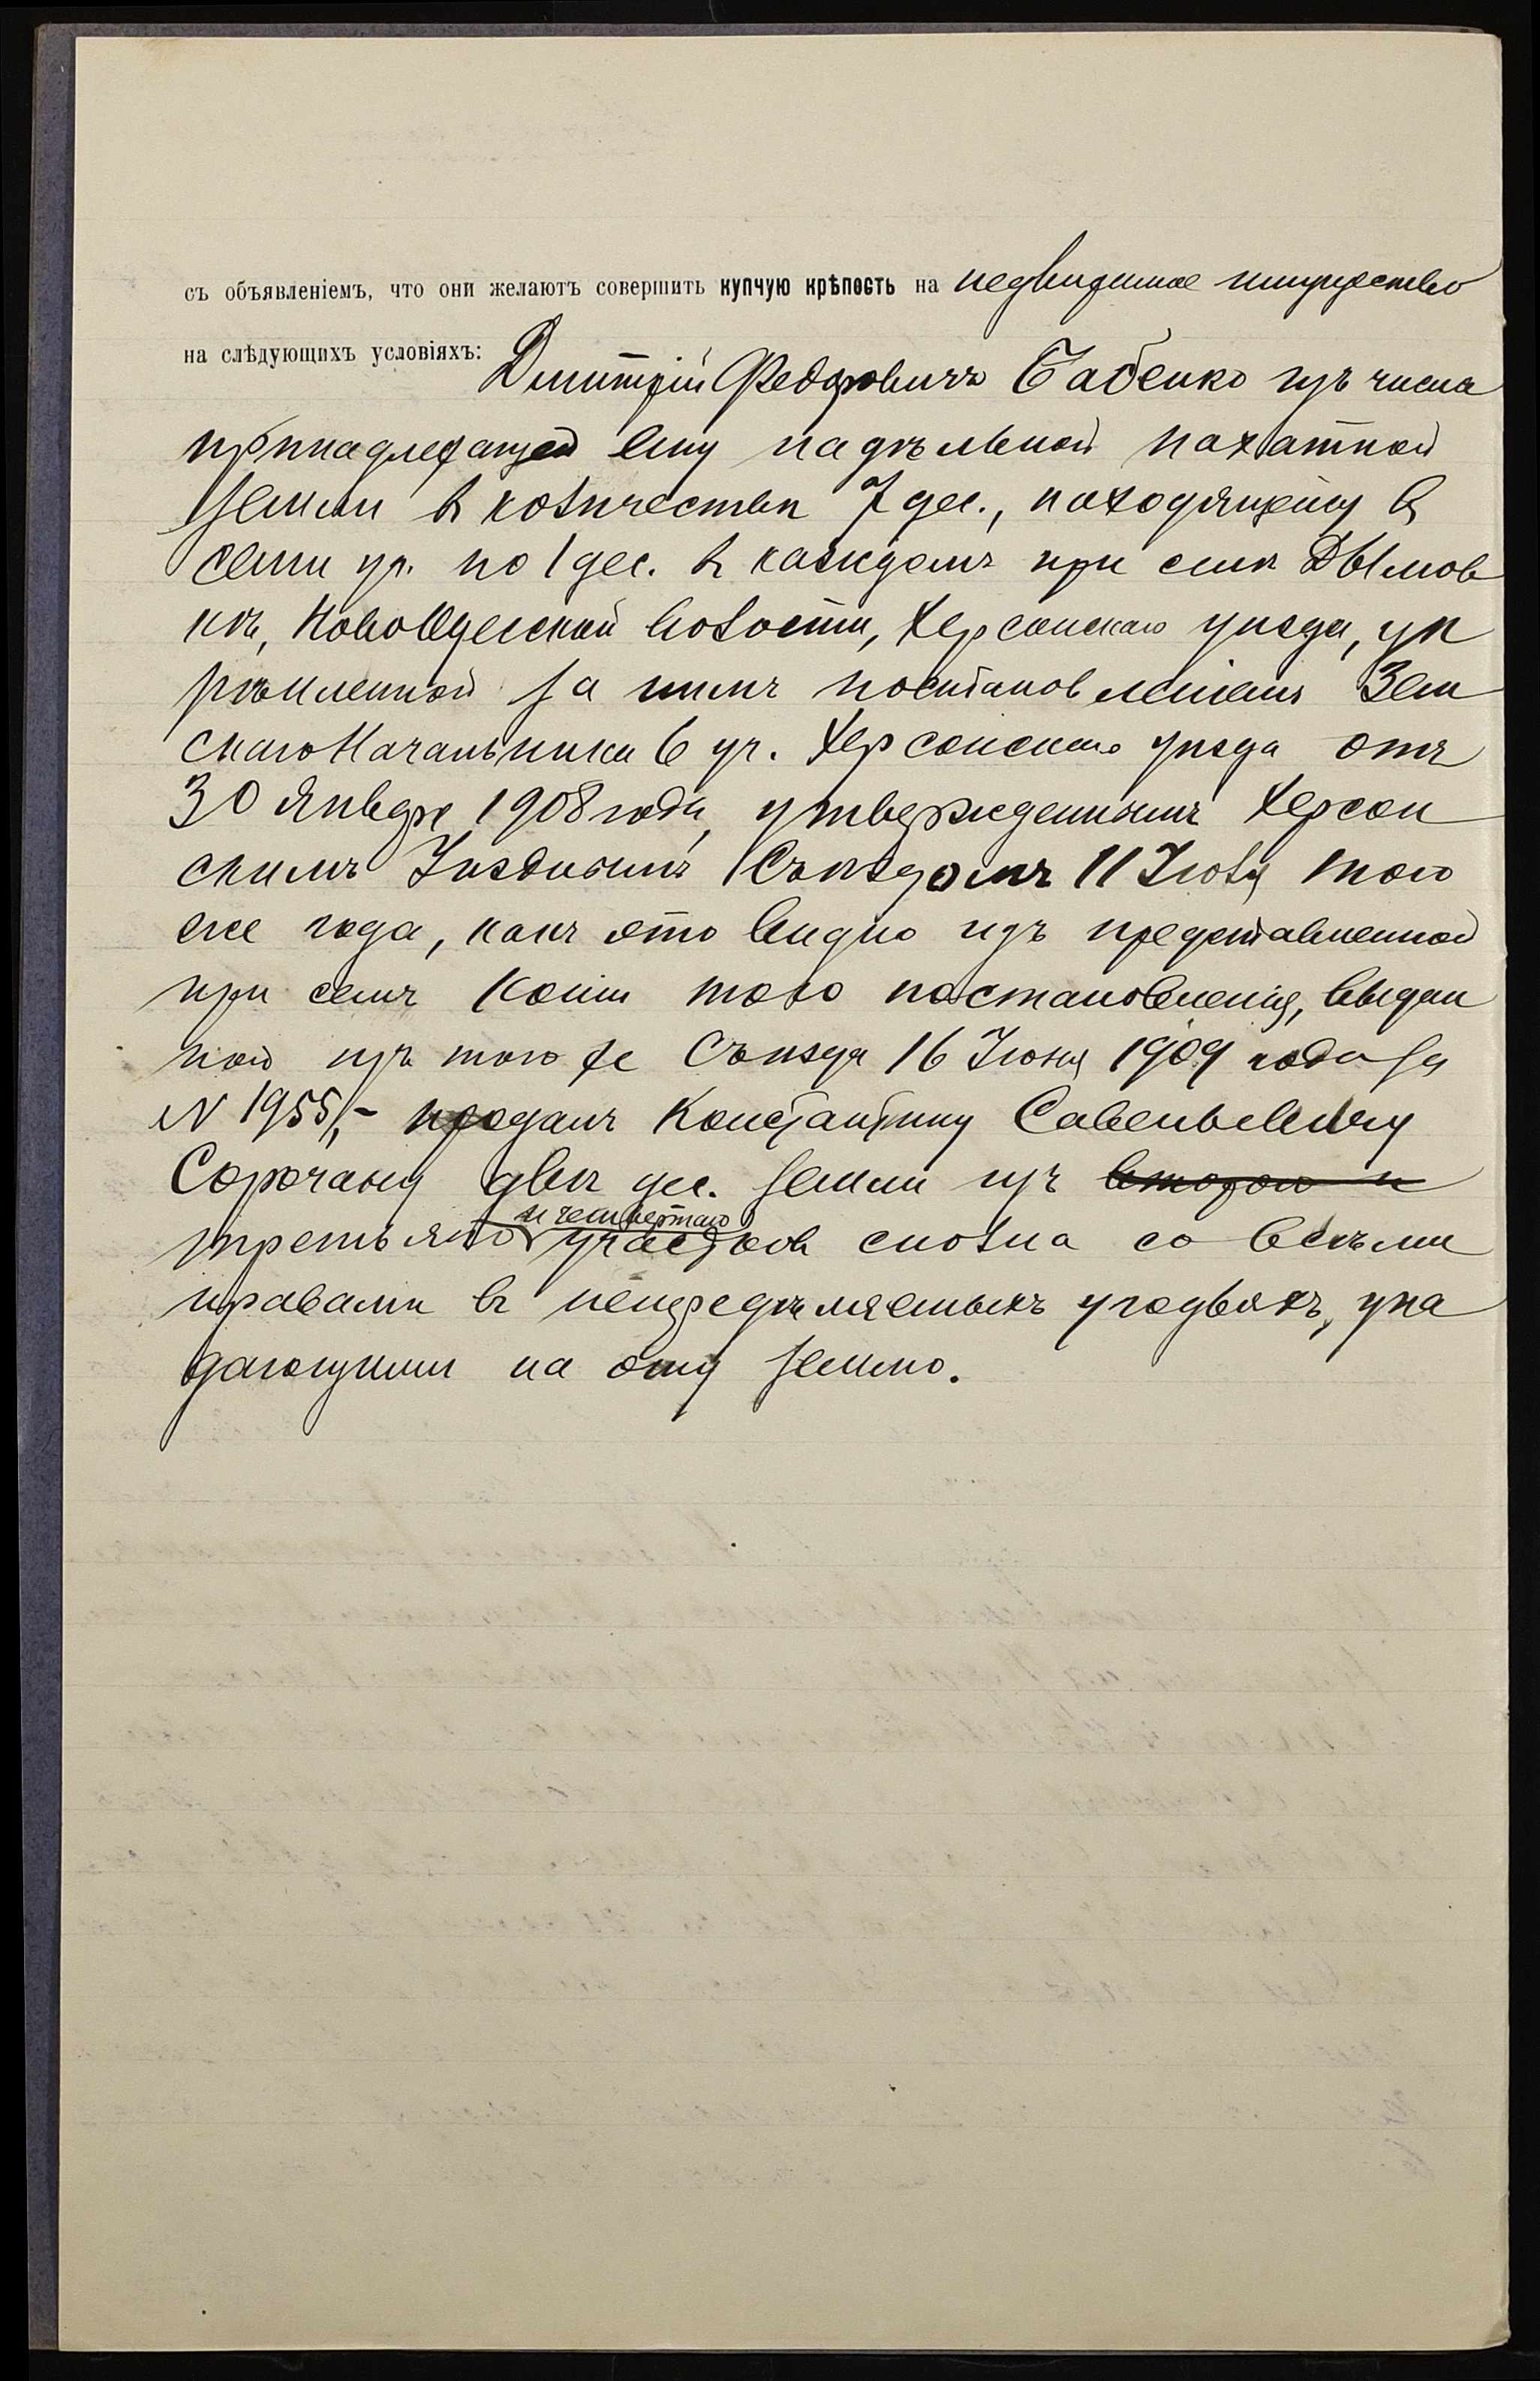 съ объявленіемъ, что они желаютъ совершить купчую крѣпость на недвижимое имущество
на слѣдующихъ условіяхъ: Дмитрій Федоровичъ Бабенко изъ числа
принадлежащей ему надѣльной пахатной
земли въ количествѣ 7 дес., находящейся въ
семи уч. по 1 дес. въ каждомъ при селѣ Дымов
кѣ, Новоодесской волости, Херсонскаго уѣзда, ук
рѣпленной за нимъ постановленіемъ Зем
скаго Начальника 6 уч. Херсонскаго уѣзда отъ
30 Января 1908 года, утвержденнымъ Херсон
скимъ Уѣзднымъ Съѣздомъ 11 Іюля того
же года, какъ это видно изъ представленной
при семъ копіи того постановленія, выдан
ной изъ того же Съѣзда 16 Іюня 1909 года за
N 1955,- продалъ Константину Савельевичу
Сорочану двѣ дес. земли изъ второго и
третьяго и четвертаго участковъ сполна со всѣми
правами въ непередѣляемыхъ угодьяхъ, упа
дающими на эту землю.